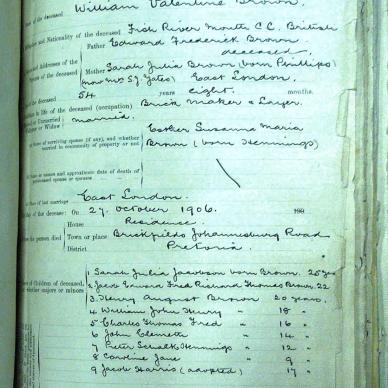 William Valentine Brown.
of the deceased
Fish River Mouth C.C. British
and Nationality of the deceased
Father Edward Frederick Brown
deceased.
and Addresses of the
Mother Sarah Julia Brown (born Phillips)
of the deceased
(now Mrs S.J. Yates) East London.
of the deceased
54 years eight. months.
in life of the deceased (occupation) Brick Maker & Layer.
or Unmarried married.
or Widow)
of surviving spouse (if any), and whether
married in community of property or not
Esther Susanna Maria
Brown (born Hennings)
or Names and approximate date of death of
predeceased spouse or spouses
of last marriage East London.
of the decease: On 27 October 1906. 190
House Residence.
the person died Town or place Brickfields Johannesburg Road
District Pretoria.
of Children of deceased,
whether majors or minors
1 Sarah Julia Jacobson born Brown. 25 years
2 Jacob Edward Fred Richard Thomas Brown. 22
3. Henry August Brown 20 years.
4 William John Henry " 18 "
5 Charles Thomas Fred " 16 "
6 John Clemett " 14 "
7 Peter Hennings " 12 "
8 Caroline Jane " 9 "
9 Jacob Harris (adopted) " 17 "